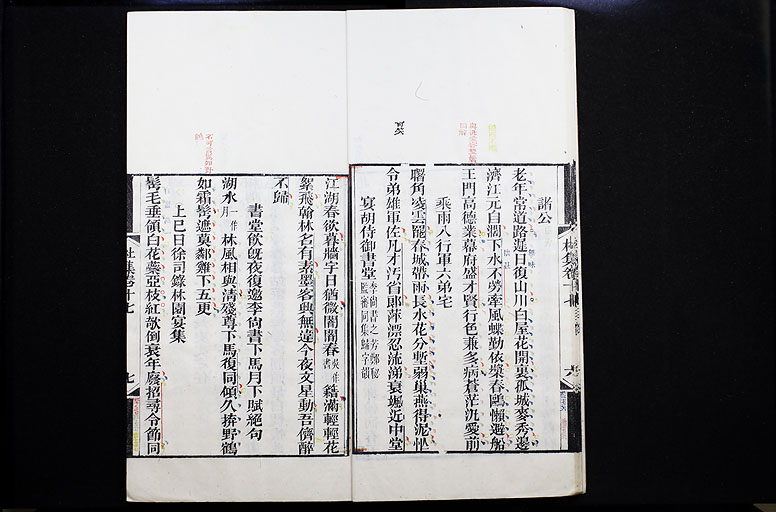 諸公
老年常道路遲日復山川白屋花開裏孤城麥秀邊
濟江元自濶下水不勞牽風蝶勤依槳春鷗懶避船
王門高德業幕府盛才賢行色兼多病蒼茫泛愛前
乘雨入行軍六弟宅
曙角凌雲罷春城帶雨長水花分塹弱巢燕得泥忙
令弟雄軍佐凡才汚省郎萍漂忍流涕衰颯近中堂
宴胡侍御書堂 李尚書之芳鄭秘監審同集歸字韻
江湖春欲暮牆宇日猶微闇闇春 書 籍滿輕輕花
絮飛翰林名有素墨客興無違今夜文星動吾儕醉
不歸
書堂飲旣夜復邀李尚書下馬月下賦絕句
湖水 一作月 林風相與淸殘尊下馬復同傾久拚野鶴
如霜鬢遮莫鄰雞下五更
上巳日徐司錄林園宴集
鬢毛垂領白花蘂亞枝紅欹倒衰年廢招尋令節同
杜集卷十七
九